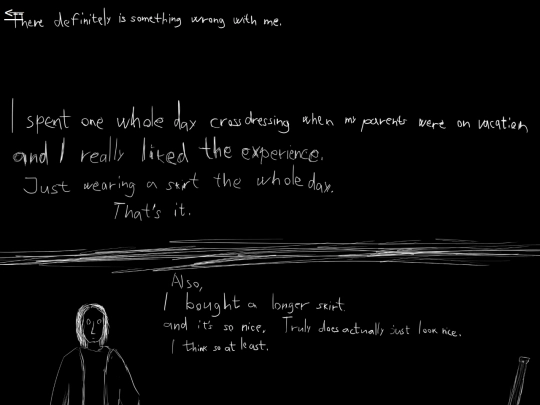 There definitely is something wrong with me.
I spent one whole day crossdressing when my parents were on vacation
and I really liked the experience.
Just wearing a skirt the whole day.
That's it.
Also,
I bought a longer skirt.
and it's so nice, Truly does actually just look nice.
I think so at least.